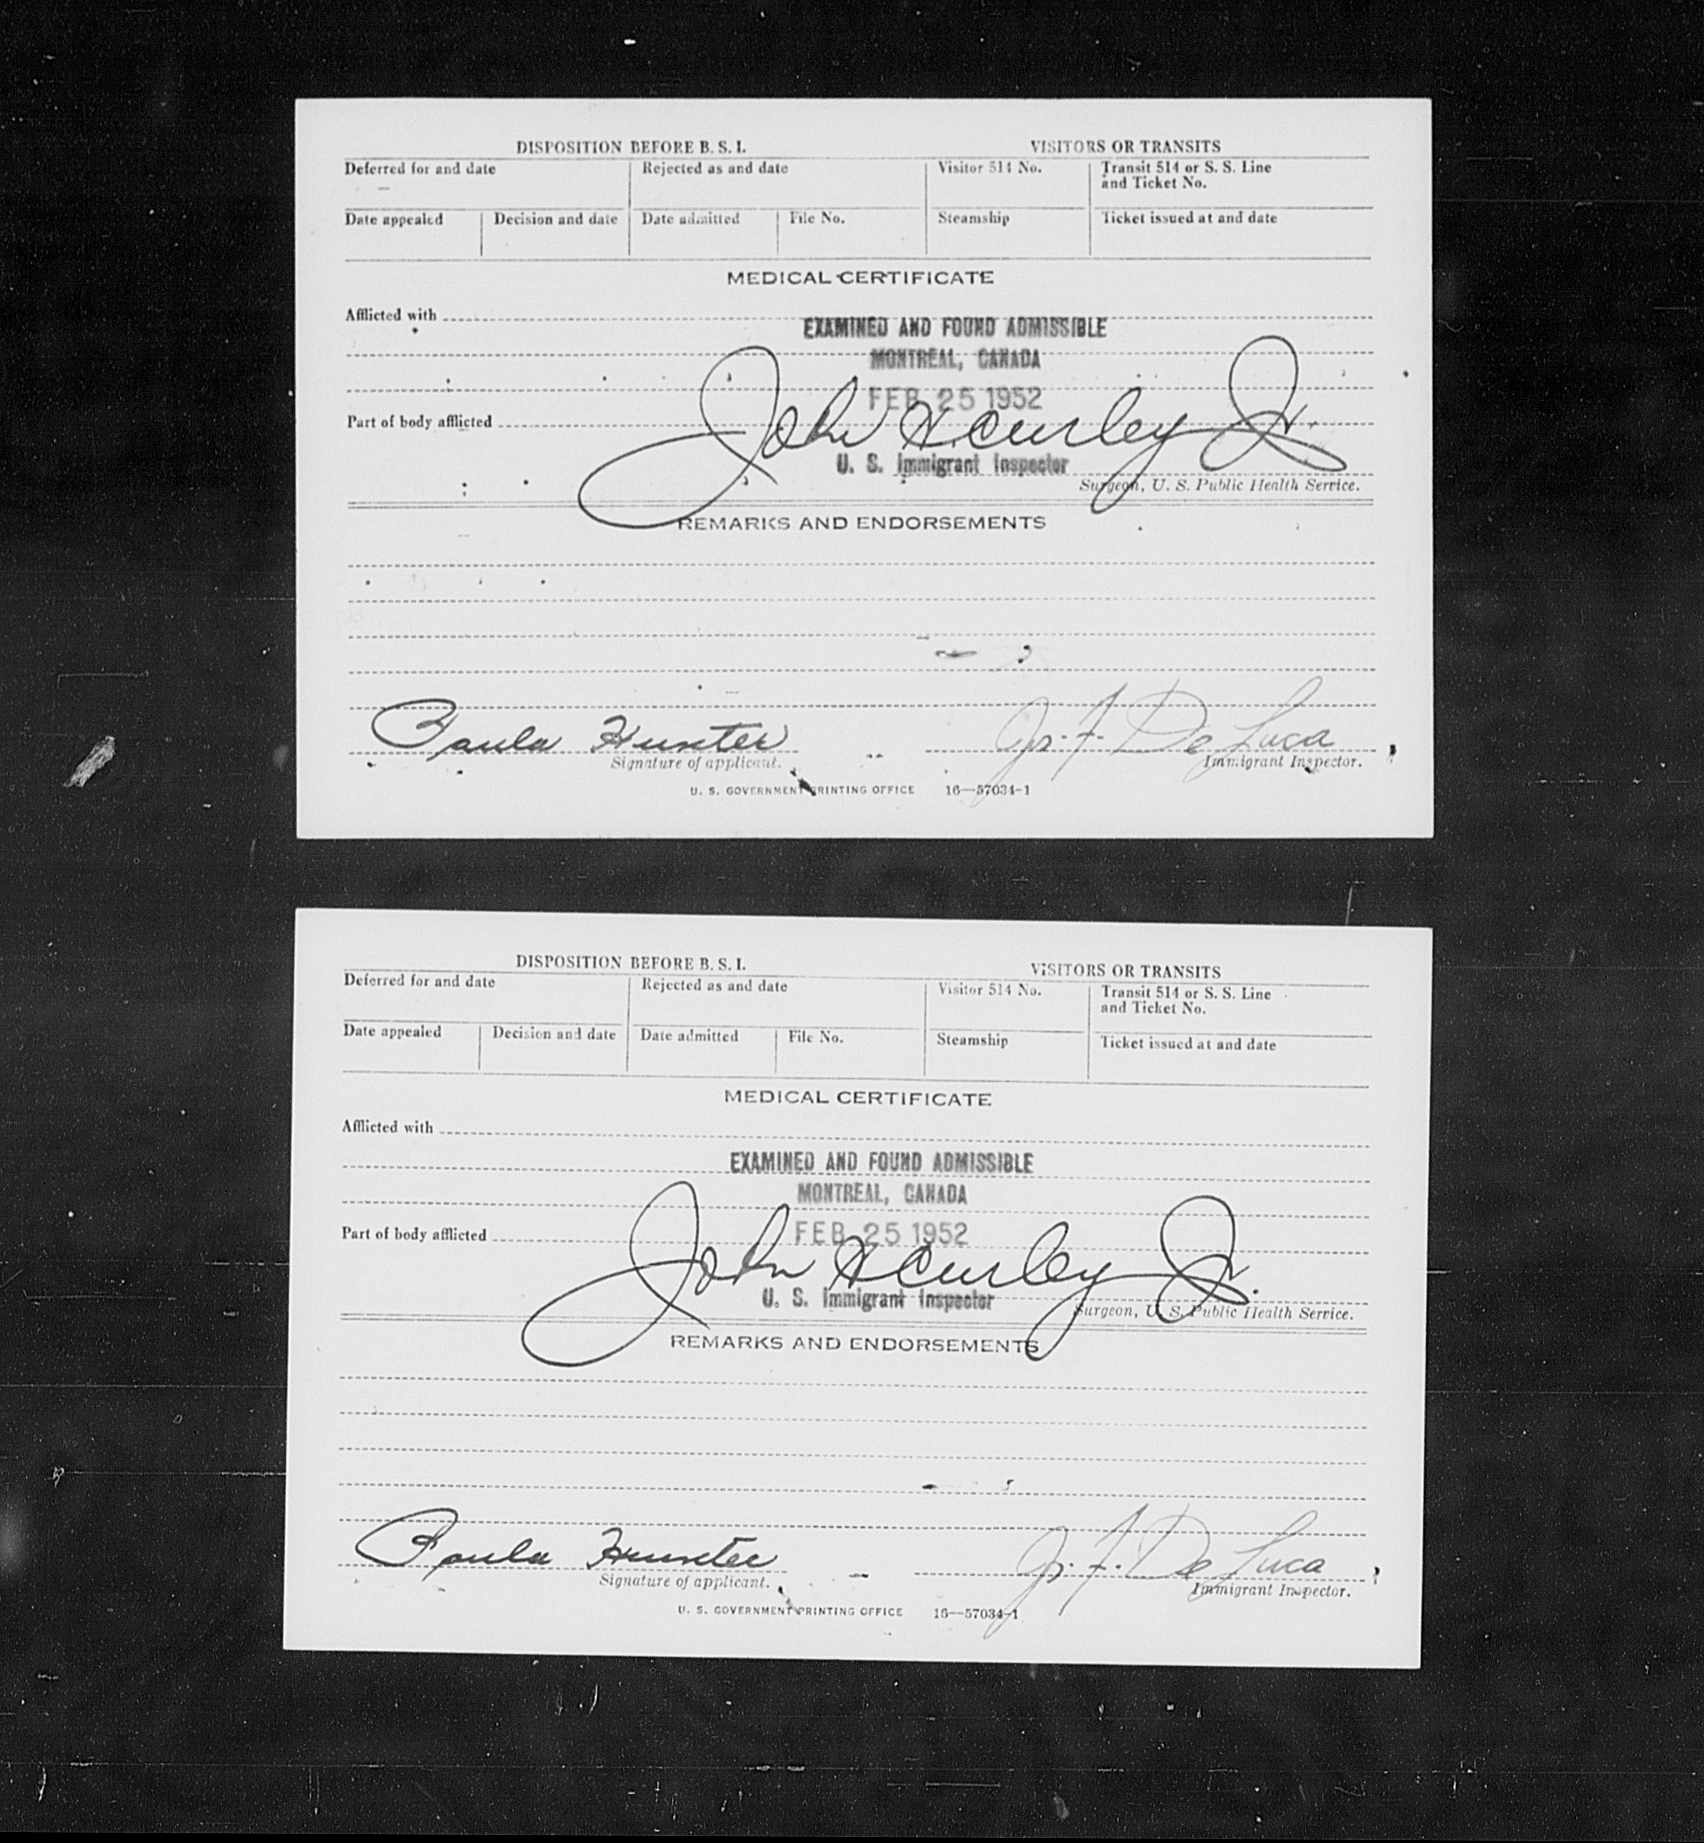 DISPOSITION BEFORE B. S. I.
VISITORS OR TRANSITS
Deferred for and date
Rejected as and date
Visitor 514 No.
Transit 514 or S. S. Line
and Ticket No.
Date appealed
Decision and date
Date admitted
File No.
Steamship
Ticket issued at and date
MEDICAL CERTIFICATE
Afflicted with
EXAMINED AND FOUND ADMISSIBLE
MONTREAL, CANADA
FEB 25 1952
Part of body afflicted
John H Curley Jr.
U. S. Immigrant Inspector
Surgeon, U. S. Public Health Service.
REMARKS AND ENDORSEMENTS
Paula Hunter
De Luca
Signature of applicant.
Immigrant Inspector.
U. S. GOVERNMENT PRINTING OFFICE 16—57034-1
DISPOSITION BEFORE B. S. I.
VISITORS OR TRANSITS
Deferred for and date
Rejected as and date
Visitor 514 No.
Transit 514 or S. S. Line
and Ticket No.
Date appealed
Decision and date
Date admitted
File No.
Steamship
Ticket issued at and date
MEDICAL CERTIFICATE
Afflicted with
EXAMINED AND FOUND ADMISSIBLE
MONTREAL, CANADA
FEB 25 1952
Part of body afflicted
John H Curley Jr.
U. S. Immigrant Inspector
Surgeon, U. S. Public Health Service.
REMARKS AND ENDORSEMENTS
Paula Hunter
De Luca
Signature of applicant.
Immigrant Inspector.
U. S. GOVERNMENT PRINTING OFFICE 16—57034-1